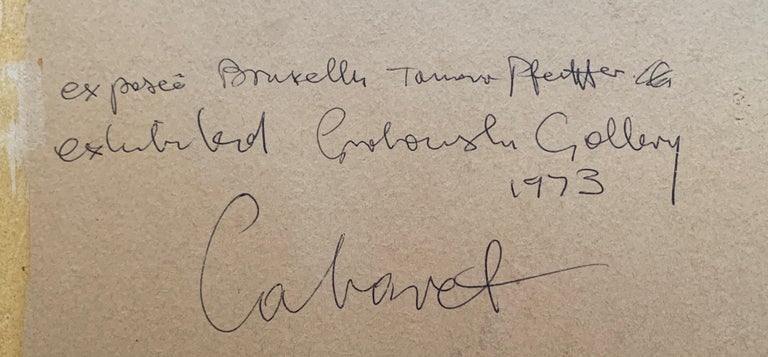 exposé Bruxelles Tamara Pfeiffer
exhibited Grabowski Gallery
1973
Cabaret